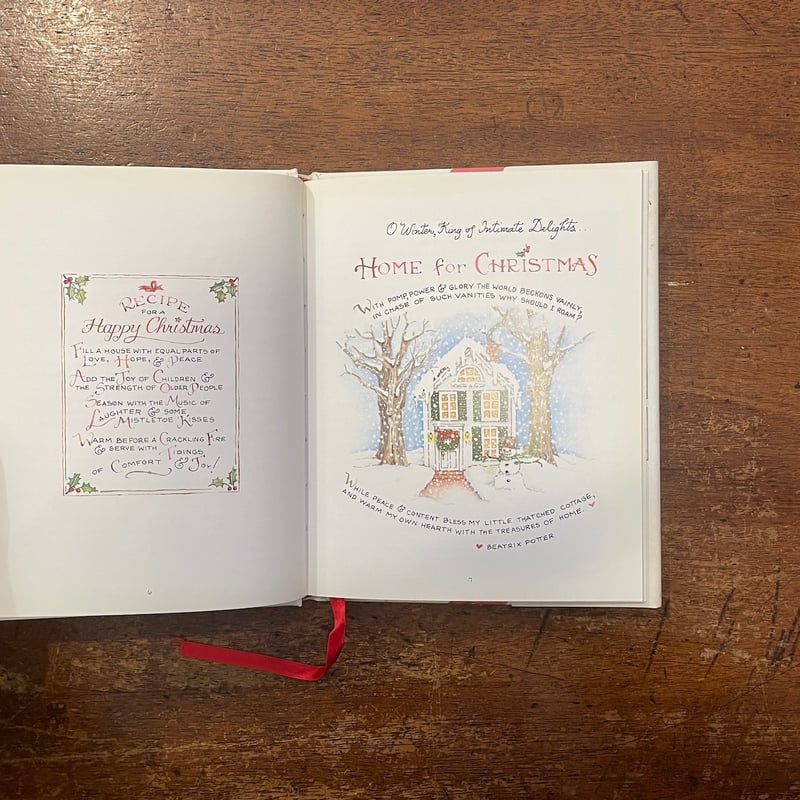 RECIPE
FOR A
Happy Christmas
FILL A HOUSE WITH EQUAL PARTS OF
LOVE, HOPE, & PEACE
ADD THE JOY OF CHILDREN &
THE STRENGTH OF OLDER PEOPLE
SEASON WITH THE MUSIC OF
LAUGHTER & SOME
MISTLETOE KISSES
WARM BEFORE A CRACKLING FIRE
& SERVE WITH TIDINGS
OF COMFORT & JOY!
6
O Winter, King of Intimate Delights...
HOME for CHRISTMAS
WITH POMP, POWER & GLORY THE WORLD BECKONS VAINLY,
IN CHASE OF SUCH VANITIES WHY SHOULD I ROAM?
WHILE PEACE & CONTENT BLESS MY LITTLE THATCHED COTTAGE,
AND WARM MY OWN HEARTH WITH THE TREASURES OF HOME.
BEATRIX POTTER
7